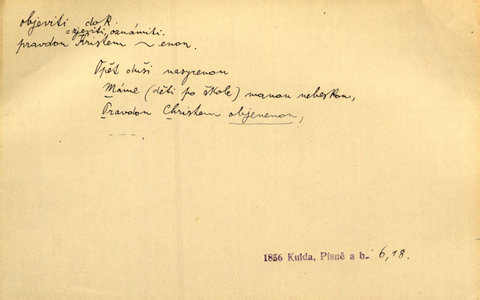 objeviti dok.
= zjeviti, oznámiti.
pravdou Kristem ~ enou.
Opět duši nasycenou
Máme (děti po škole) manou nebeskou,
Pravdou Christem objevenou,
----
1856 Kulda, Písně a b. 6, 18.